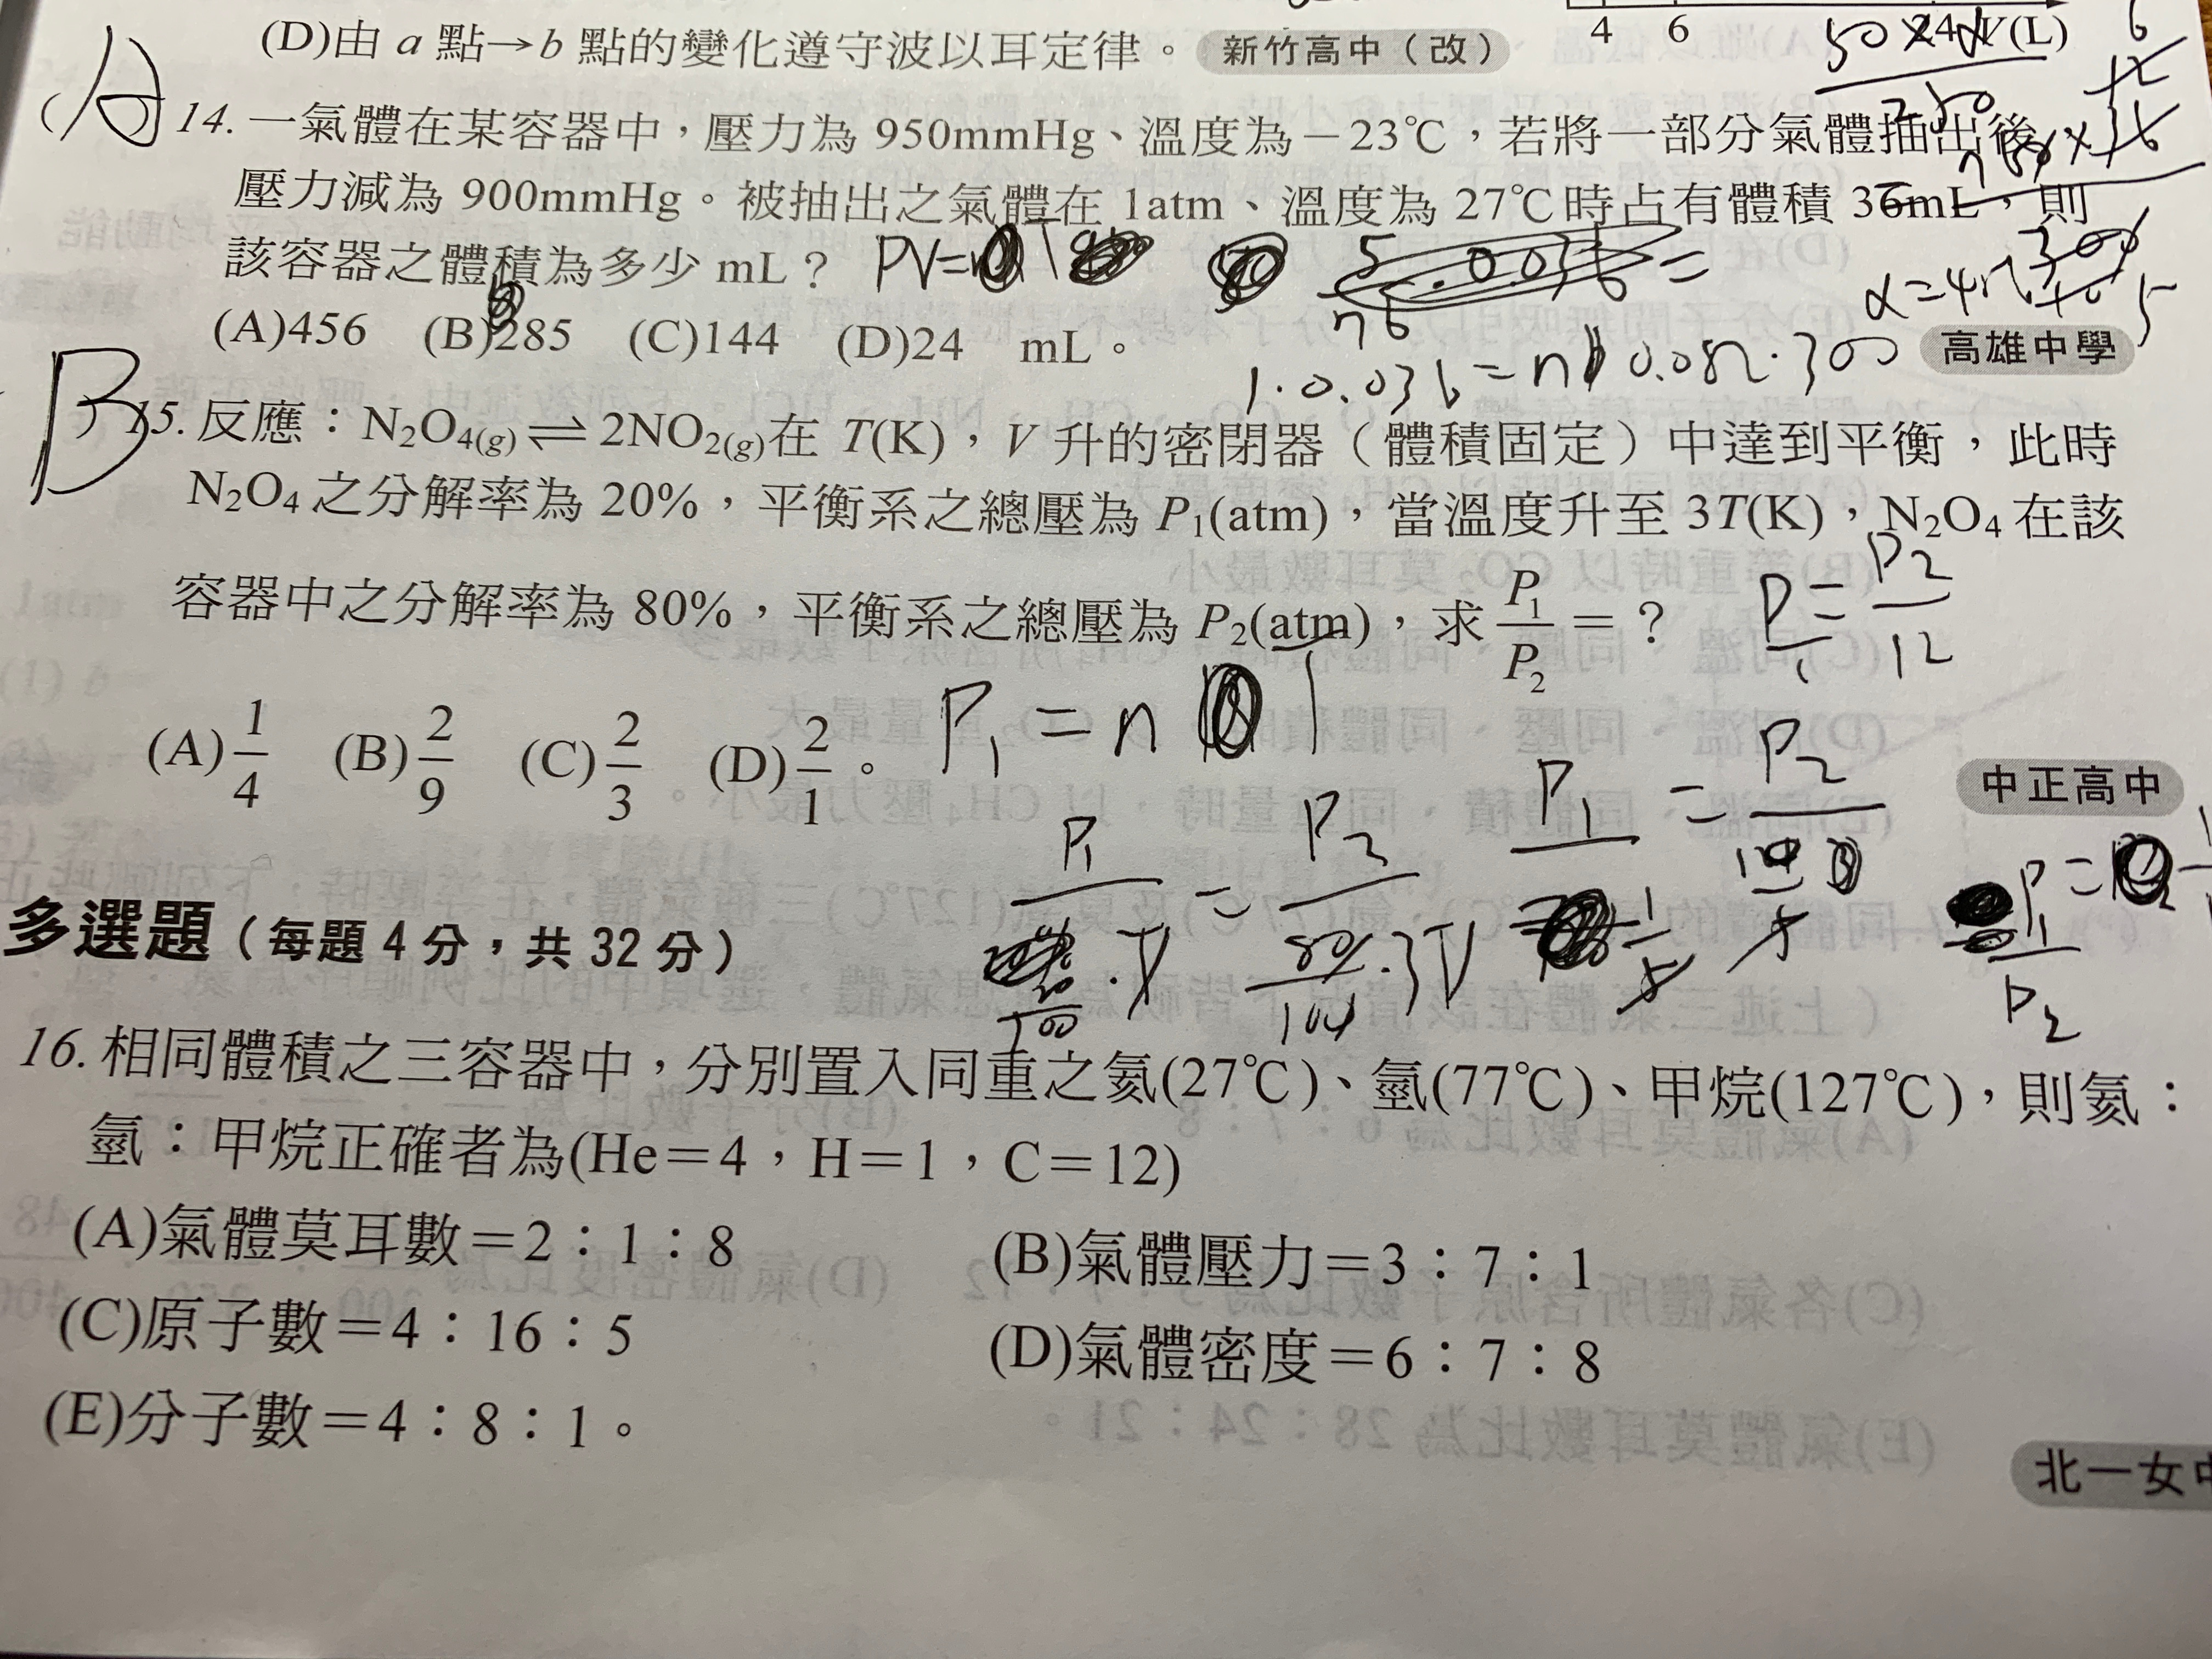 4 6 24 V(L)
(D)由 a 點→b 點的變化遵守波以耳定律。 新竹高中（改）
50×
250
(A) 14. 一氣體在某容器中，壓力為 950mmHg、溫度為－23℃，若將一部分氣體抽出後，
壓力減為 900mmHg。被抽出之氣體在 1atm、溫度為 27℃時占有體積 36mL，則
該容器之體積為多少 mL？ PV=n
(A)456 (B)285 (C)144 (D)24 mL。
高雄中學
1·0.036=n 0.082·300
B 15. 反應：N₂O₄(g)⇌2NO₂(g)在 T(K)，V 升的密閉器（體積固定）中達到平衡，此時
N₂O₄之分解率為 20%，平衡系之總壓為 P₁(atm)，當溫度升至 3T(K)，N₂O₄在該
容器中之分解率為 80%，平衡系之總壓為 P₂(atm)，求 P₁/P₂＝？
P₁/1=P₂/12
(A)1/4 (B)2/9 (C)2/3 (D)2/1。
P₁=n
中正高中
多選題（每題 4 分，共 32 分）
16. 相同體積之三容器中，分別置入同重之氦(27℃)、氫(77℃)、甲烷(127℃)，則氦：
氫：甲烷正確者為(He＝4，H＝1，C＝12)
(A)氣體莫耳數＝2：1：8 (B)氣體壓力＝3：7：1
(C)原子數＝4：16：5 (D)氣體密度＝6：7：8
(E)分子數＝4：8：1。
北一女中